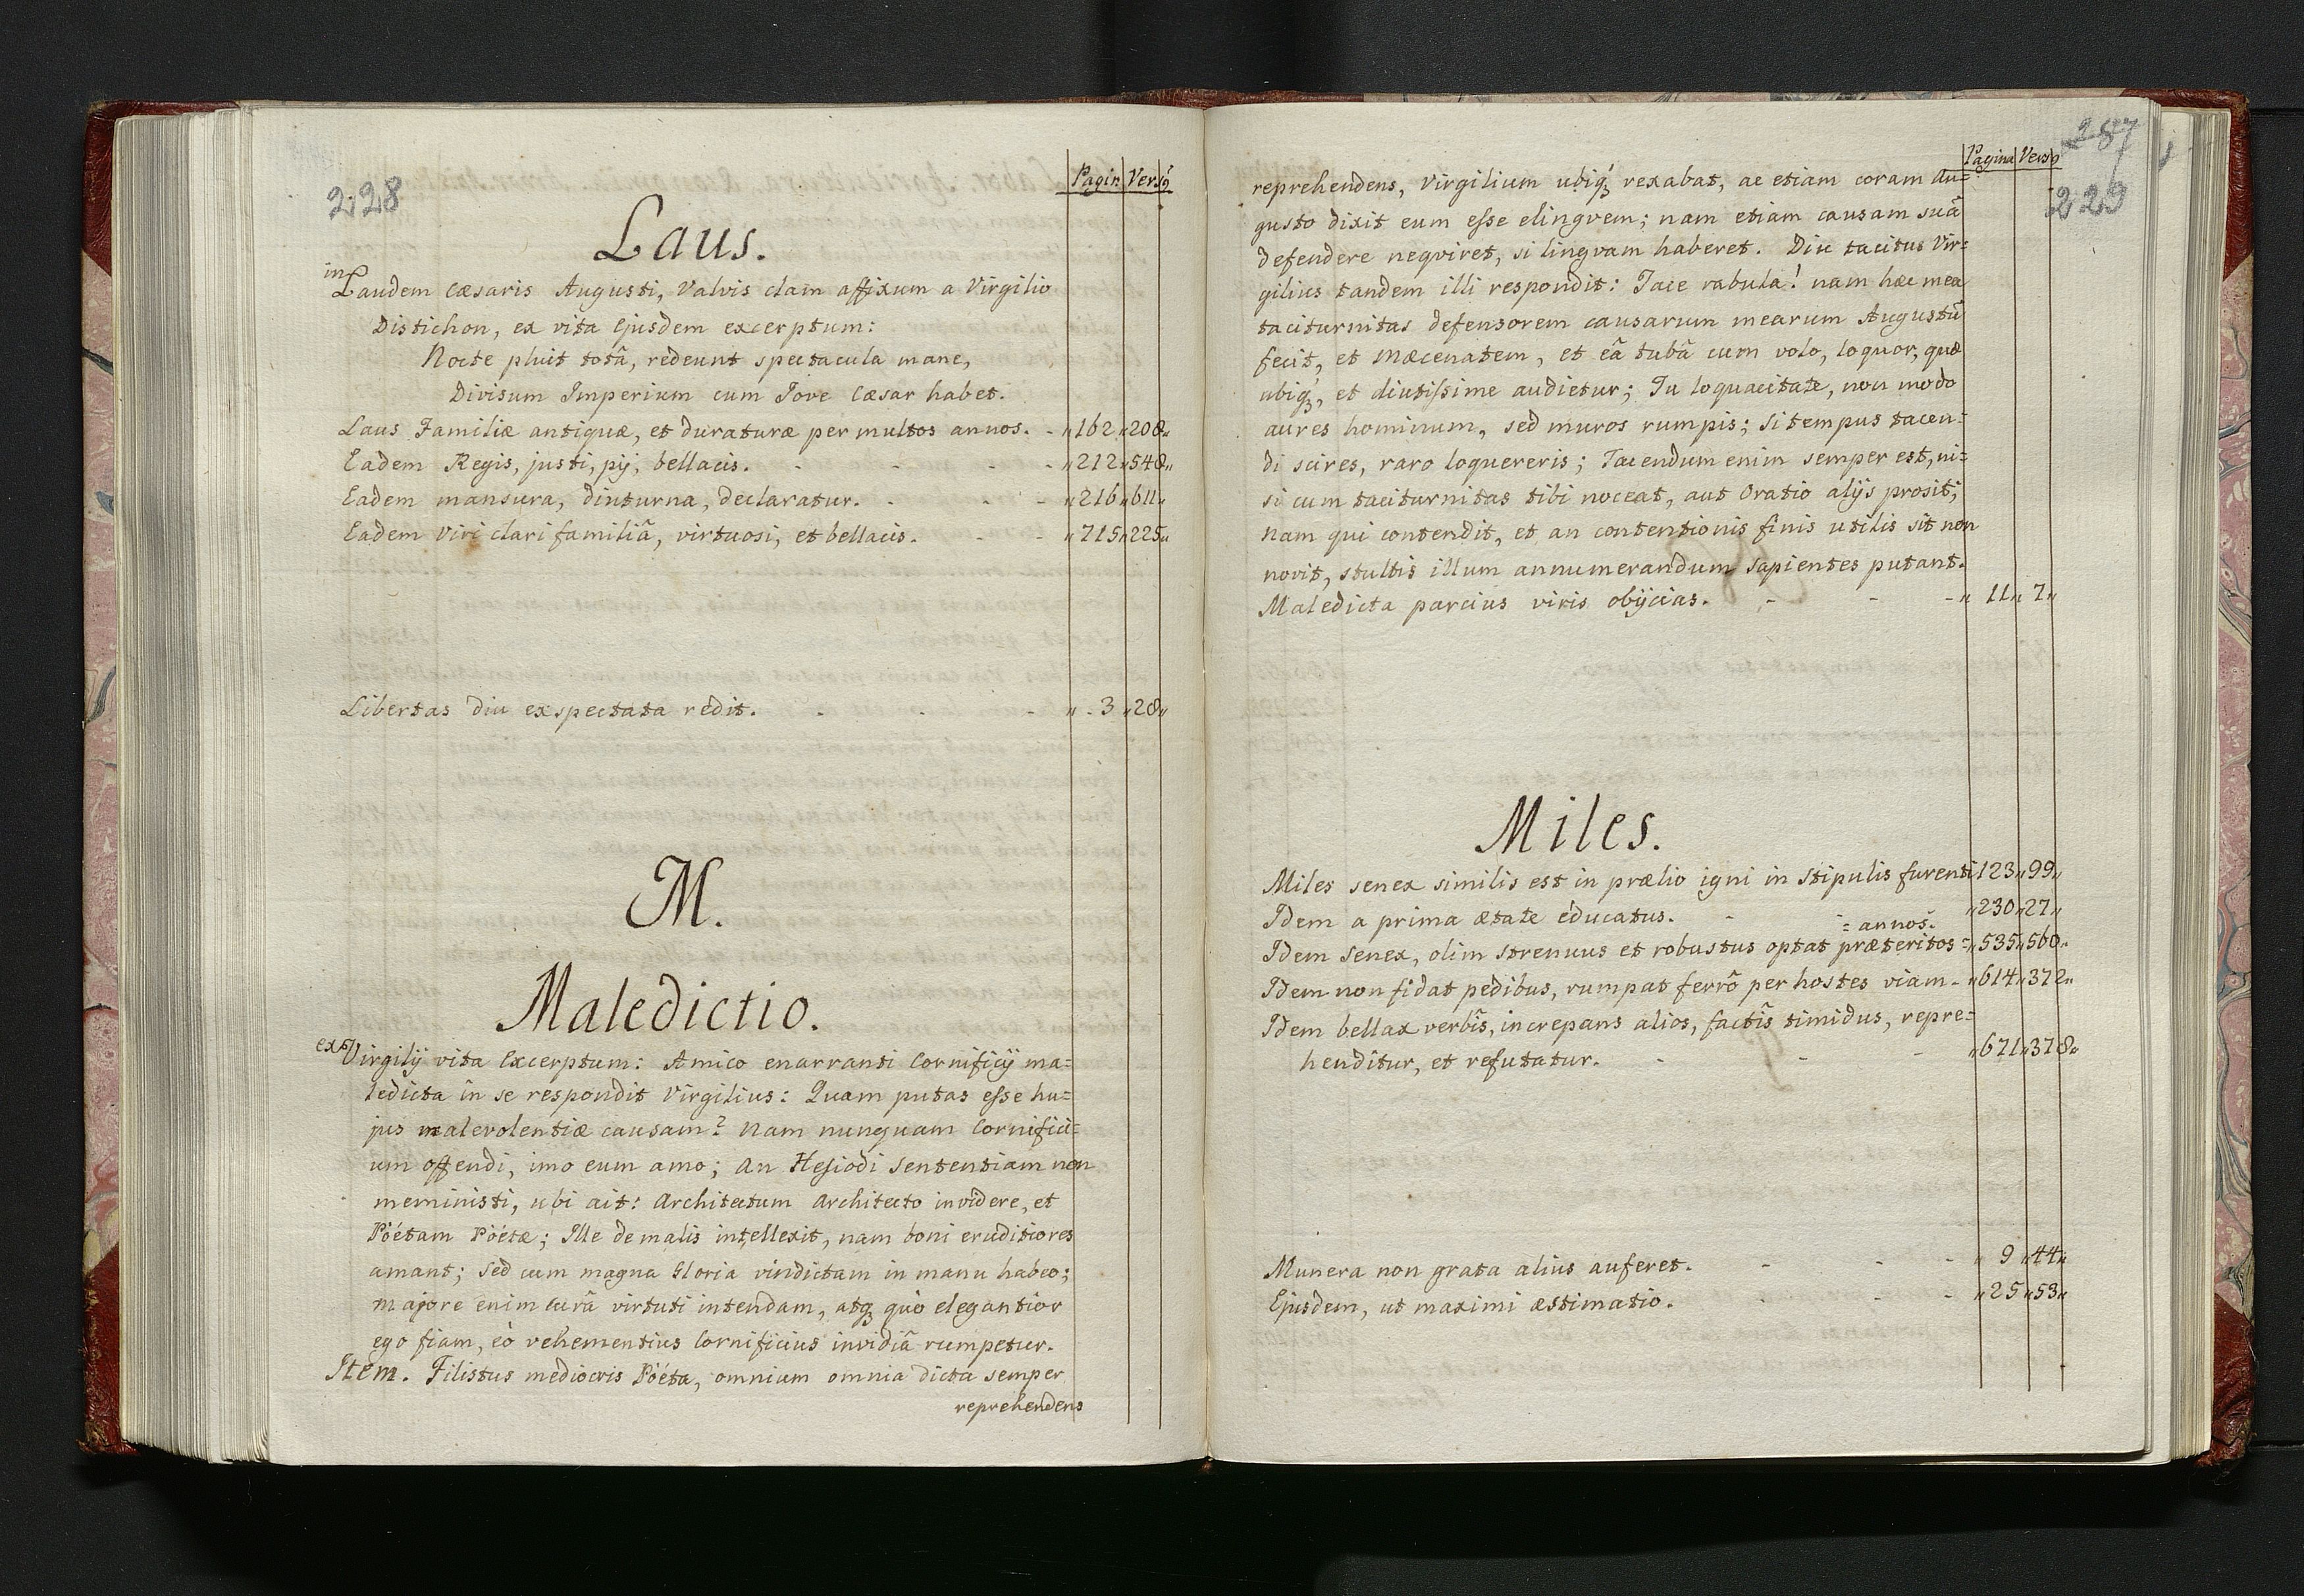 228
Pagin. Versq
Laus.
in Laudem Cæsaris Augusti, Valvis clam affixum a Virgilio
Distichon, ex vita Ejusdem excerptum:
Nocte pluit totâ, redeunt spectacula mane,
Divisum Imperium cum Jove Cæsar habet.
Laus Familiæ antiquæ, et duraturæ per multos annos. - „162„208„
Eadem Regis, justi, pij, bellacis. - - - - „212„548„
Eadem mansura, diuturna, declaratur. - - - „216„611„
Eadem Viri clari familiâ, virtuosi, et bellacis. - - „715„225„
Libertas diu exspectata redit. - - - „ - 3„28„
M.
Maledictio.
ex Virgilij vita Excerptum: Amico enarranti Cornificij ma=
ledicta in se respondit Virgilius: Quam putas esse hu=
jus malevolentiæ causam? Nam nunquam Cornifici=
um offendi, imo eum amo; An Hesiodi Sententiam non
meministi, ubi ait: Architectum Architecto invidere, et
Poétam Poétæ; Ille de malis intellexit, nam boni eruditiores
amant; Sed cum magna Gloria vindictam in manu habeo;
majore enim curâ virtuti intendam, atq quò elegantior
ego fiam, eò vehementius Cornificius invidiâ rumpetur.
Item. Filistus mediocris Poéta, omnium omnia dicta semper
reprehendens
287
Pagina Versq
229
reprehendens, Virgilium ubiq vexabat, ac etiam coram Au=
gusto dixit eum esse elingvem; nam etiam causam suã
defendere neqviret, si lingvam haberet. Diu tacitus Vir=
gilius tandem illi respondit: Tace rabula! nam hæc mea
taciturnitas defensorem causarum mearum Augustũ
fecit, et Mæcenatem, et eâ tubâ cum volo, loquor, quæ
ubiq, et diutissime audietur; Tu loquacitate, non modo
aures hominum, sed muros rumpis; si tempus tacen=
di scires, raro loquereris; Tacendum enim semper est, ni=
si cum taciturnitas tibi noceat, aut Oratio alijs prosit;
Nam qui contendit, et an contentionis finis utilis sit non
novit, stultis illum annumerandum Sapientes putant.
Maledicta parcius viris obijcias. - - - „ 11„ 7„
Miles.
Miles senex similis est in prælio igni in Stipulis furenti 123„99„
Idem a prima ætate educatus. - „230„27„
= annos.
Idem Senex, olim Strenuus et robustus optat præteritos = „535„560„
Idem non fidat pedibus, rumpat ferrô per hostes viam - „614„372„
Idem bellax verbis, increpans alios, factis timidus, repre=
henditur, et refutatur. - - - „671„378„
Munera non grata alius auferet. - - - „ 9 „44„
Ejusdem, ut maximi æstimatio. - - - „25„53„